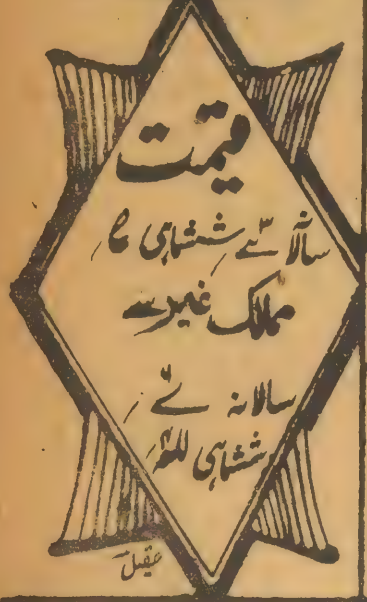 قیمت
سالانہ ششماہی
ممالک غیر سے
سالانہ
ششماہی
عقیل